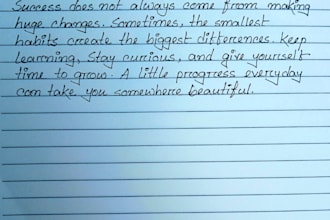 Success does not always come from making
huge changes. Sometimes, the smallest
habits create the biggest differences. Keep
learning, Stay curious, and give yourself
time to grow. A little progress everyday
can take you somewhere beautiful.